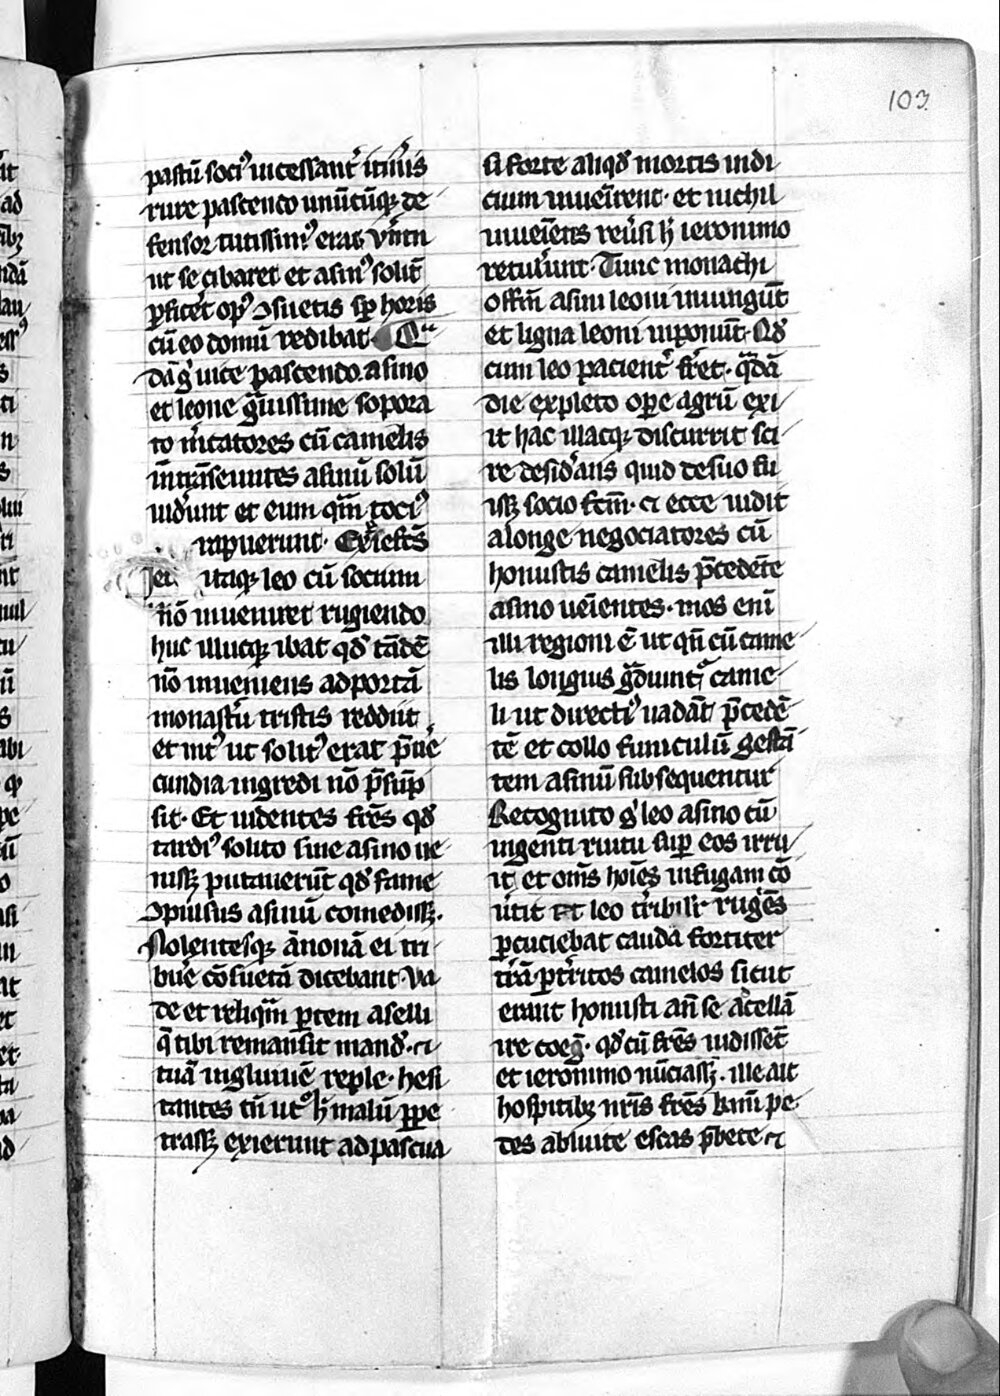 103
pastū soci⁹ incessant᷑ itin᷑is
rure pascendo unūcūqꝫ de
fensor tutissim⁹ erat. Ve᷑ntn
ut se cibaret et asin⁹ solit̄
ꝓficēt op⁹ ꝯsuetis sꝑ horis
cū eo domū redibat. Qua
dā gͦ vice pascendo asino
et leone grauissime sopora
to m᷑catores cū camelis
int̄ranseuntes asinū solū
uid᷑unt et eum qm̄ toci⁹
rapuerunt. Exꝑrefcs̄
itaqꝫ leo cū socium
nō inveniret rugiendo
huc illucqꝫ ibat qd᷑ tādē
nō inveniens ad portā
monast᷑ii tristis rediit
et int⁹ ut solit⁹ erat p̄ uē
cundia ingredi nō p̄sūp
sit. Et videntes fr̄es qd᷑
tardi⁹ solito sine asino ve
nissꝫ putaverūt qd᷑ fame
ꝯpulsus asinū comedissꝫ.
Nolentesqꝫ ānonā ei tri
bue᷑ cōsuetā dicebant. Va
de et reliqm̄ ꝑtem aselli
q̄ tibi remansit mand᷑. et
tuā ingluviē reple. hesi
tantes tn̄ ut᷑ h᷑ malū ꝑpe
trassꝫ exierunt ad pascua
si forte aliqd᷑ mortis indi
cium inven᷑irent. et nichil
inven᷑ientes rev᷑si h᷑ ieronimo
retul᷑unt. Tunc monachi
offm̄ asini leoni iniungūt
et ligna leoni inponūt. Qd᷑
cum leo pacient᷑ fr̄et. qͣdā
die expleto oꝑe agrū exi
it hac illacqꝫ discurrit sci
re desid᷑ans quid de suo fu
issꝫ socio fcm̄. et ecce vidit
alonge negociatores cū
honustis camelis p̄cedēte
asino ven᷑ientes. mos enī
illi regioni ē ut qn̄ cū came
lis longius gͣdiunt᷑ came
li ut directi⁹ vadāt p̄cedē
tē et collo funiculū gestā
tem asinū subsequentur
Recognito gͦ leo asino cū
ingenti ruitu suꝑ eos irru
it et om̄s hoīes in fugam cō
v᷑tit et leo t᷑ribilit᷑ rugēs
ꝑcuciebat cauda fortiter
t᷑rā ꝑt᷑ritos camelos sicut
erant honusti an̄ se ad cellā
ire coeg̃. qd᷑ cū fr̄es vidissēt
et ieronimo nūciassꝫ. ille ait
hospitibꝫ nr̄is fr̄es kmī pe
des abluite escas p̄bete et